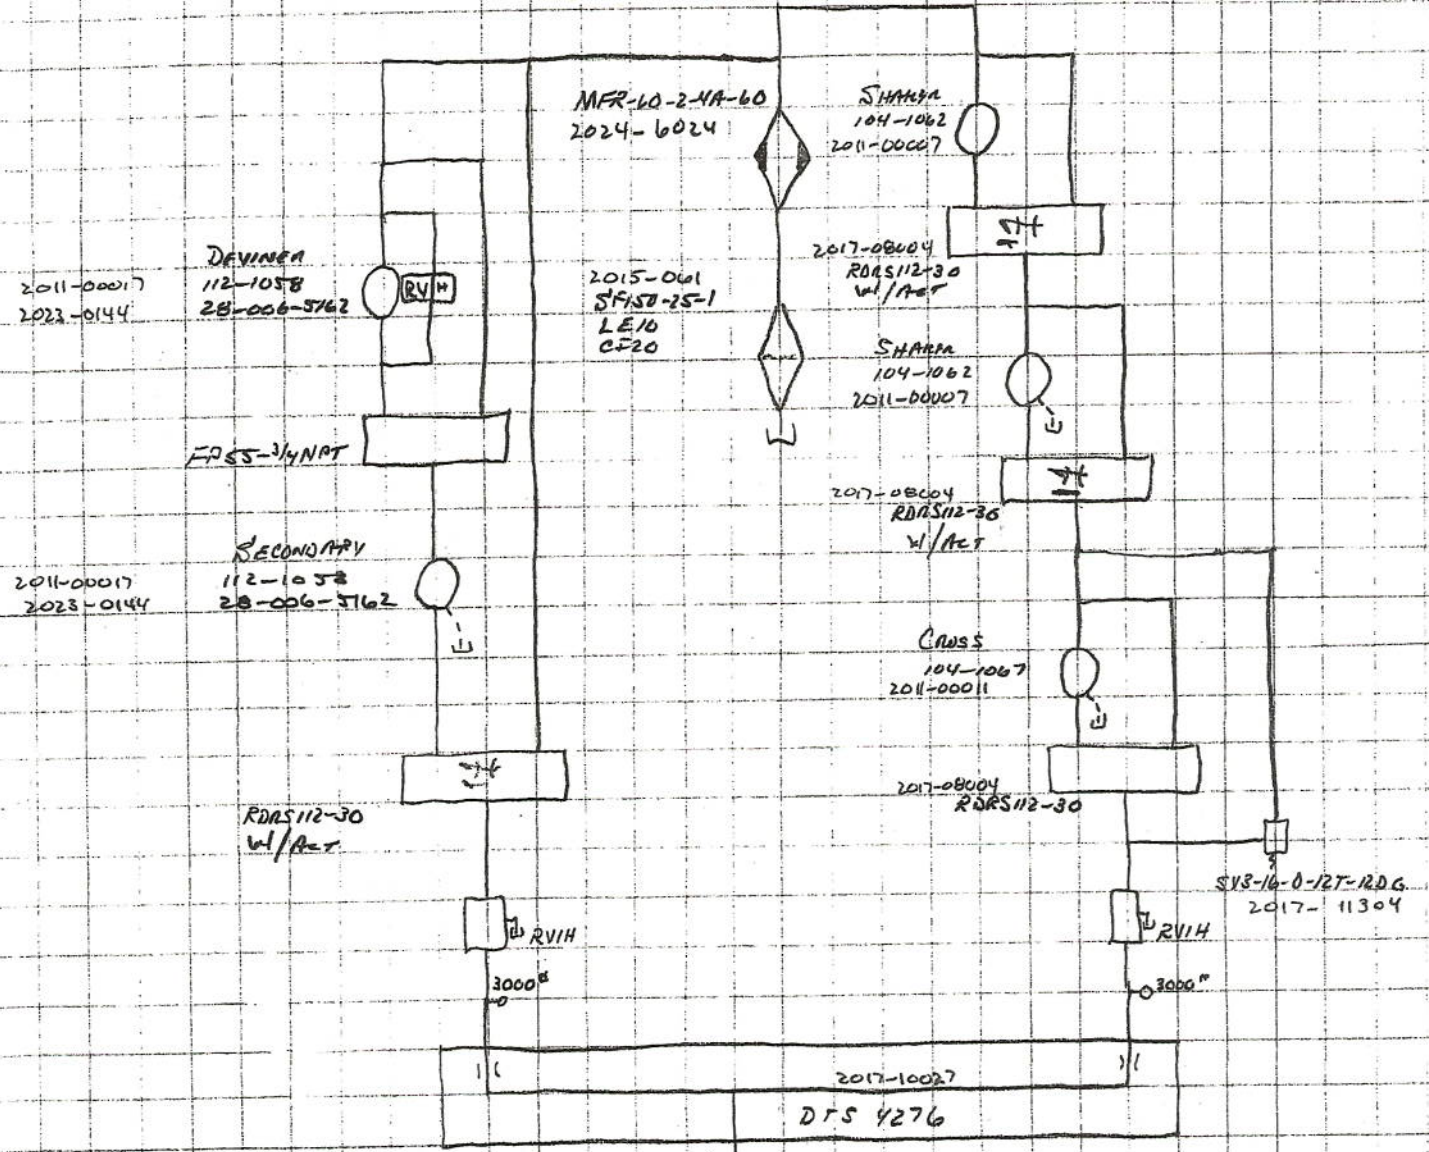 MFR-60-2-4A-60
2024-6024
SHAKER
104-1062
2011-00007
2017-08004
RDRS112-30
W/ACT
2011-00017
2023-0144
112-1058
28-006-5162
RV H
2015-061
SF150-25-1
LE10
CF20
SHAKER
104-1062
2011-00007
2017-08004
RDRS112-30
W/ACT
-3/4NPT
SECONDARY
112-1058
28-006-5162
2011-00017
2023-0144
CROSS
104-1067
2011-00011
2017-08004
RDRS112-30
RDRS112-30
W/ACT
SV3-16-0-12T-12DG
2017-11304
RV1H
RV1H
3000#
3000#
2017-10027
DTS 4276